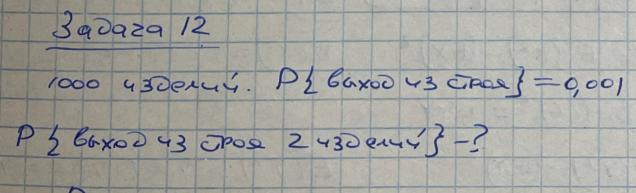 Задача 12
1000 изделий. P{выход из строя}=0,001
P{выход из строя 2 изделий}-?